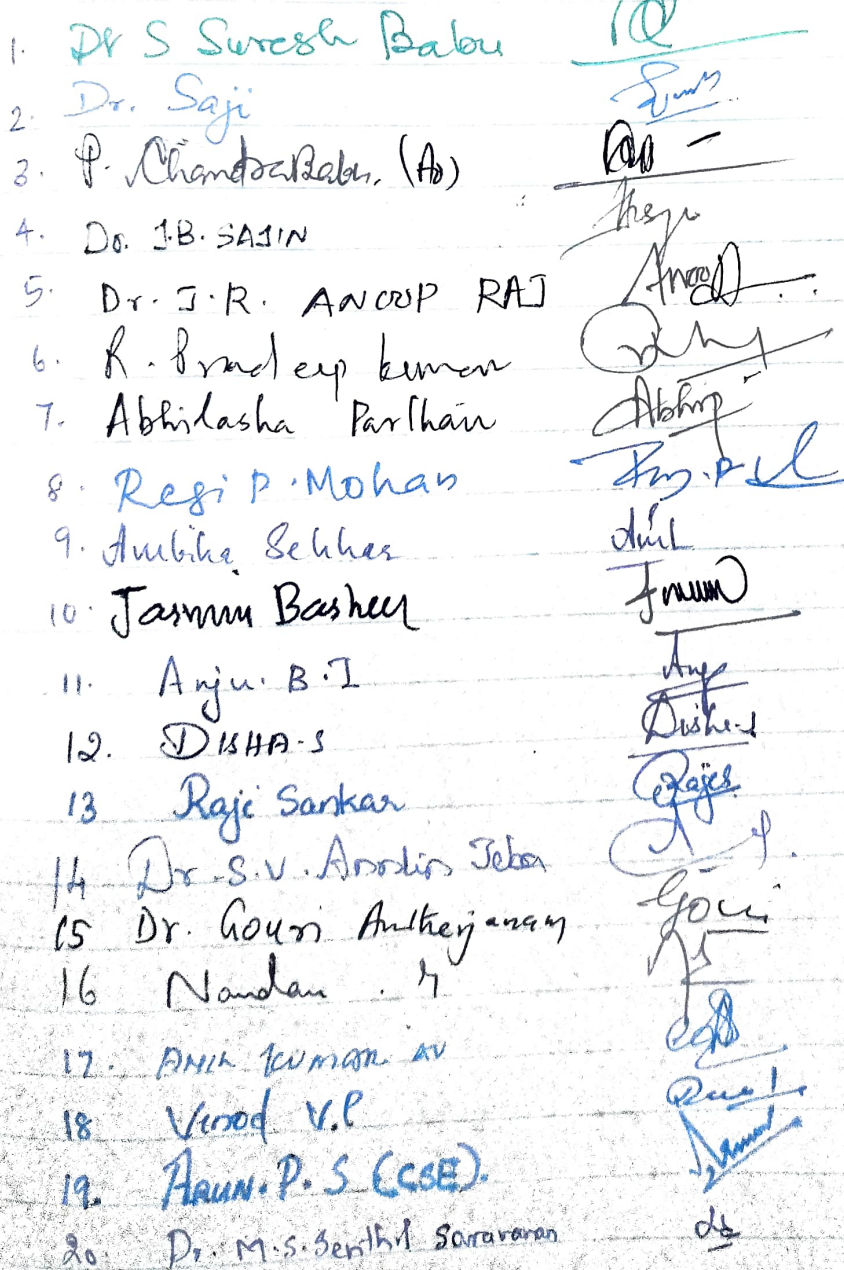 1. Dr S Suresh Babu
2. Dr. Saji
3. P. ChandraBabu, (Ao)
4. Dr. J.B. SAJIN
5. Dr. J.R. ANOOP RAJ Anoop
6. R. Pradeep kumar
7. Abhilasha Pardhan Abhip
8. Regi P. Mohan
9. Ambika Sekhar
10. Jasmin Basheer
11. Anju. B.I Anju
12. DISHA-S Disha-s
13 Raji Sankar Rajis
14 Dr. S.V. Jeba
15 Dr. Gouri Antherjanam Gouri
16 Nandan
17. ANIL KUMAR AV
18 Vinod V.P
19. ARUN. P. S (CSE).
20. Dr. M.S. Senthil Saravanan